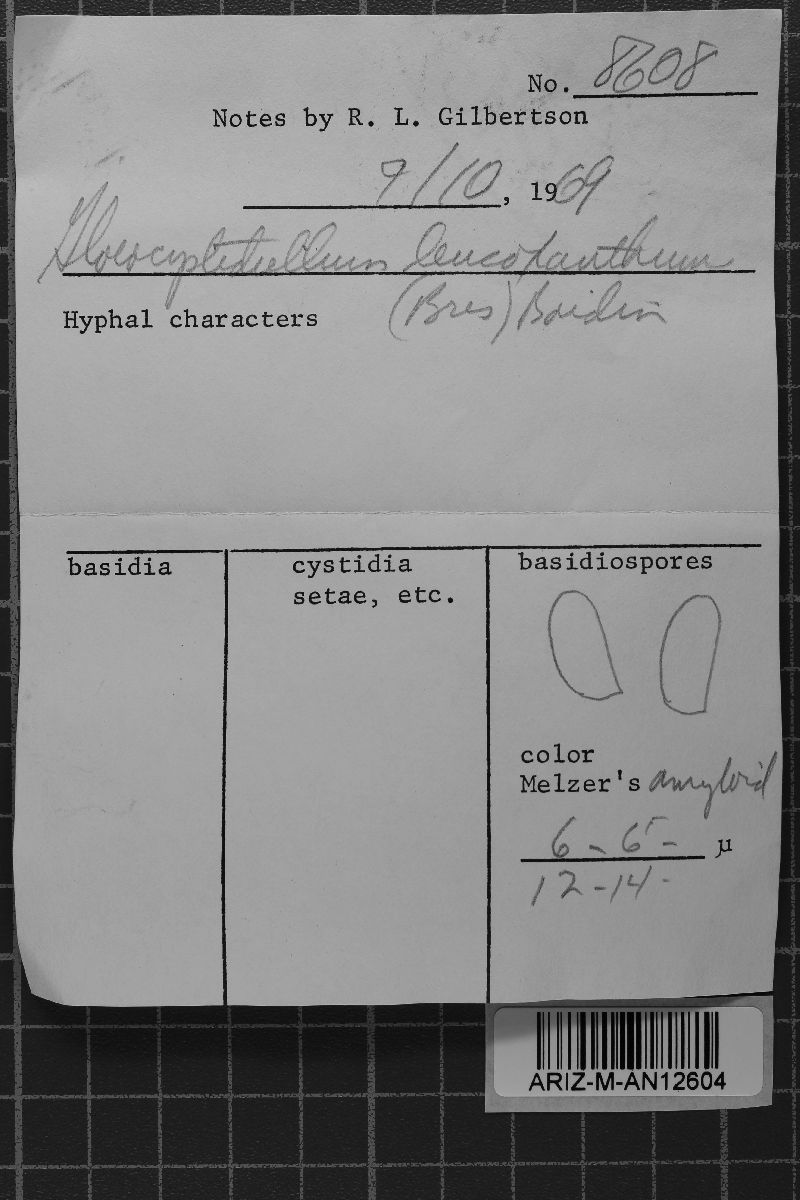 No. 8608
Notes by R. L. Gilbertson
9/10, 1969
Gloeocystidiellum leucoxanthum
Hyphal characters (Bres) Boidin
basidia
cystidia
setae, etc.
basidiospores
color
Melzer's amyloid
6 - 6.5 - µ
12 - 14 -
ARIZ-M-AN12604